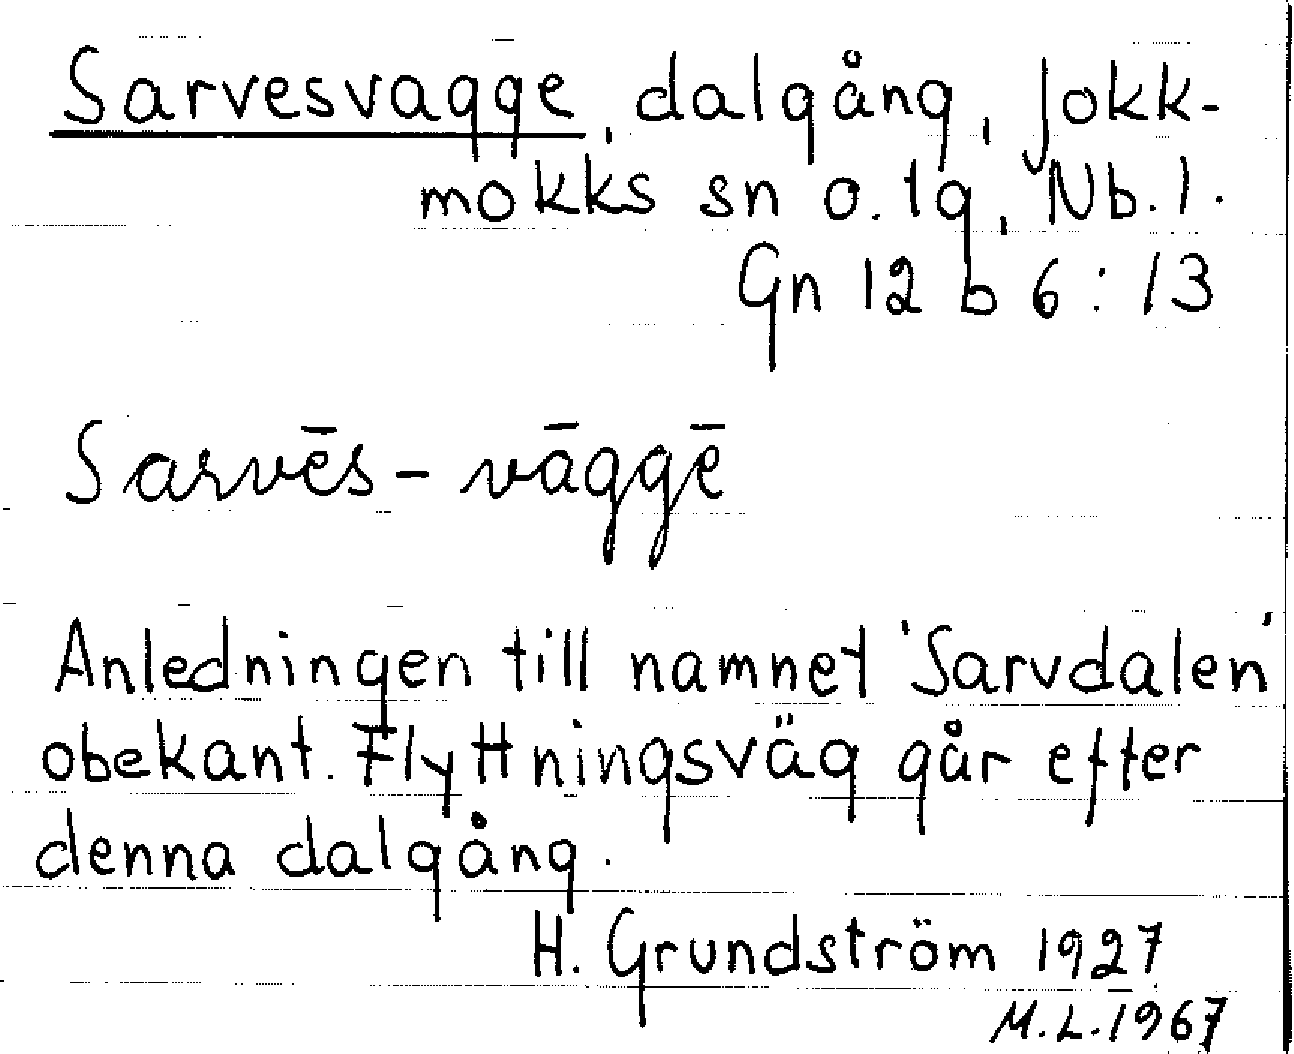 Sarvesvagge, dalgång, Jokk-
mokks sn o. tg, Nb. l.
Gn 12 b 6:13
Sarvēs-vāggē
Anledningen till namnet 'Sarvdalen'
obekant. Flyttningsväg går efter
denna dalgång.
H. Grundström 1927
M.L. 1967